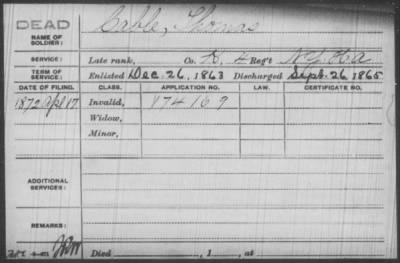 DEAD
NAME OF SOLDIER:
Cable, Thomas
SERVICE:
Late rank, Co. D, 4 Reg't N.Y. H A
TERM OF SERVICE:
Enlisted Dec. 26, 1863 Discharged Sept. 26, 1865
DATE OF FILING. CLASS. APPLICATION NO. LAW. CERTIFICATE NO.
1872 Apl 17 Invalid, 174169
Widow,
Minor,
ADDITIONAL SERVICES:
REMARKS:
Died , 1 , at